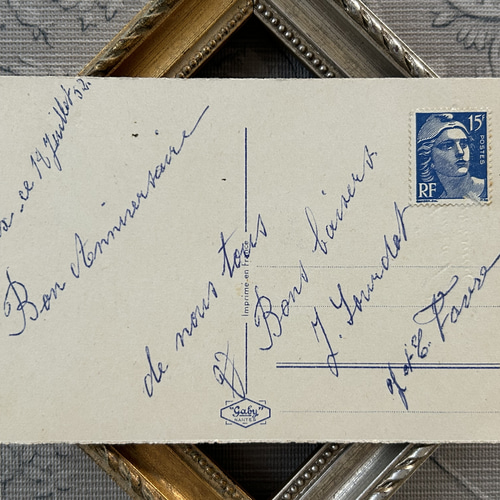 ce 19 Juillet 52.
Bon Anniversaire
de nous tous
Bons baisers
J. Lourdot
et E. Favre
15F
POSTES
RF
Imprimé en France
"Gaby"
NANTES